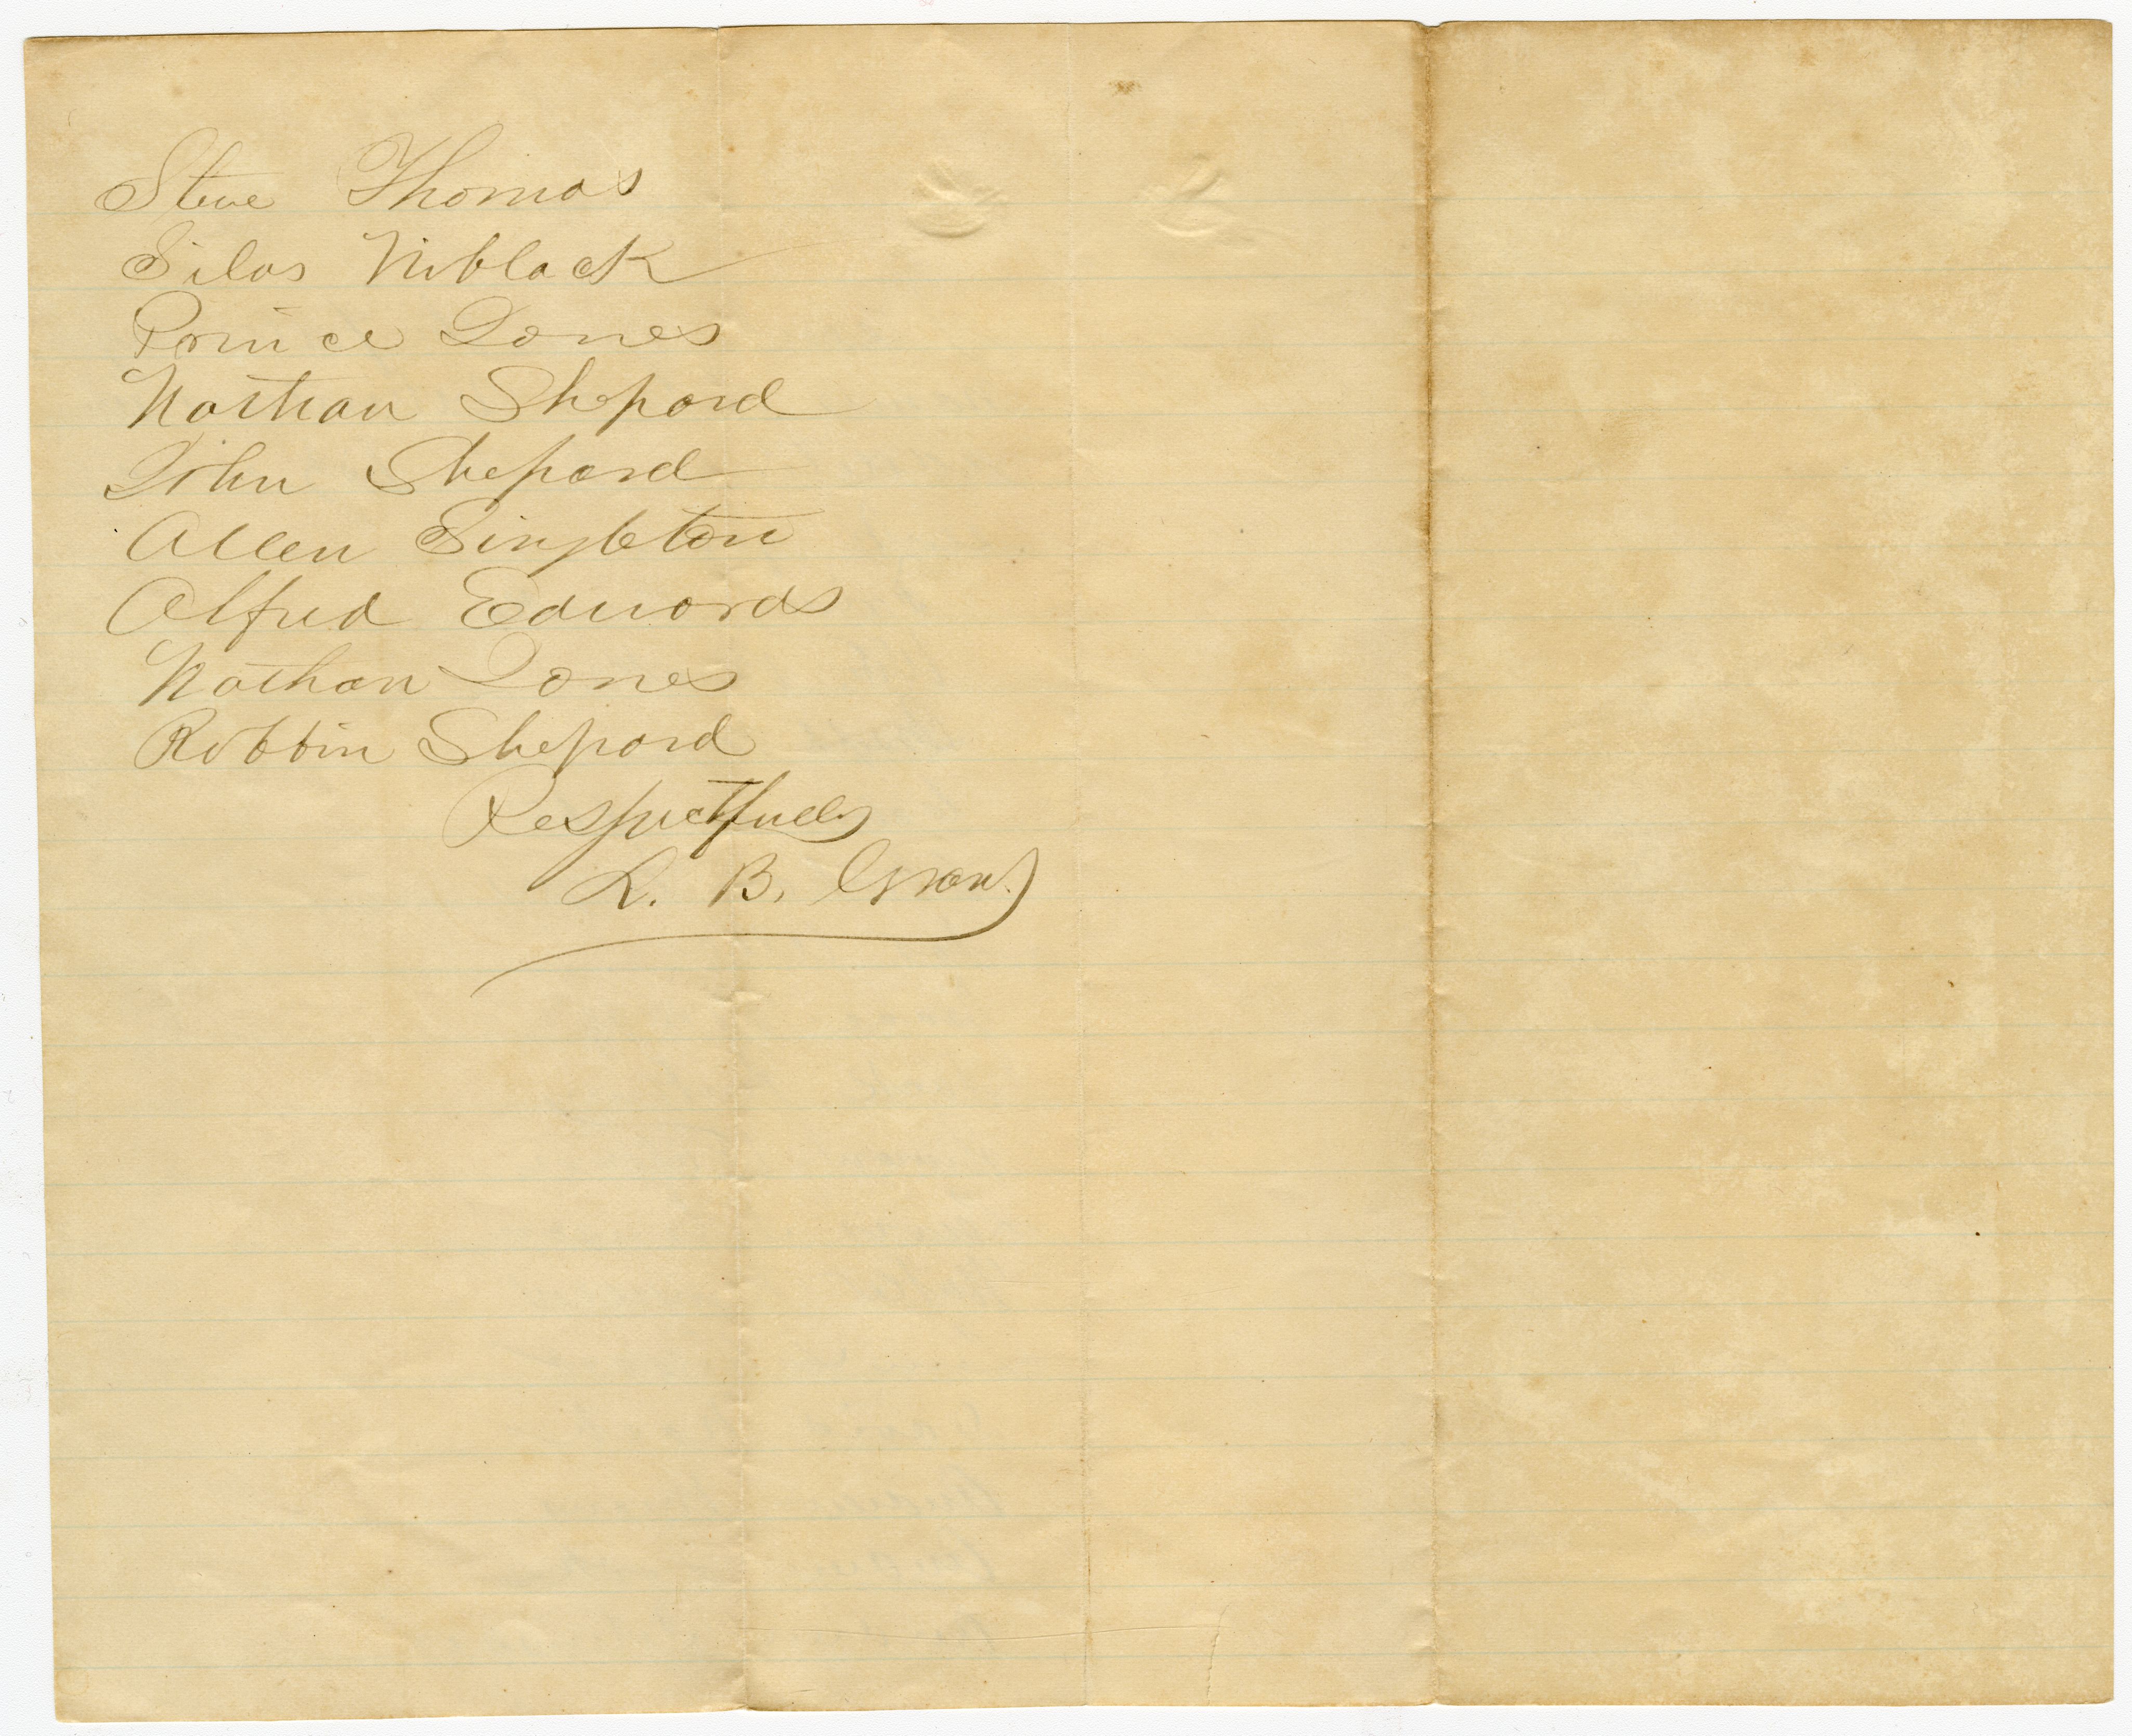 Steve Thomas
Silas Niblack
Prince Jones
Nathan Shepard
John Shepard
Allen Singleton
Alfred Edwards
Nathan Jones
Robbin Shepard
Respectfully
L. B.